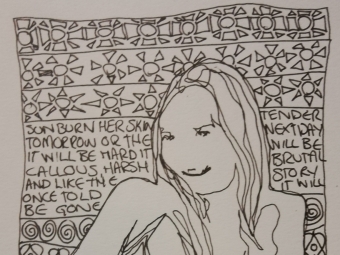 SUNBURN HER SKIN TENDER
TOMORROW OR THE NEXT DAY
IT WILL BE HARD IT WILL BE
CALLOUS, HARSH BRUTAL
AND LIKE THE STORY
ONCE TOLD IT WILL
BE GONE